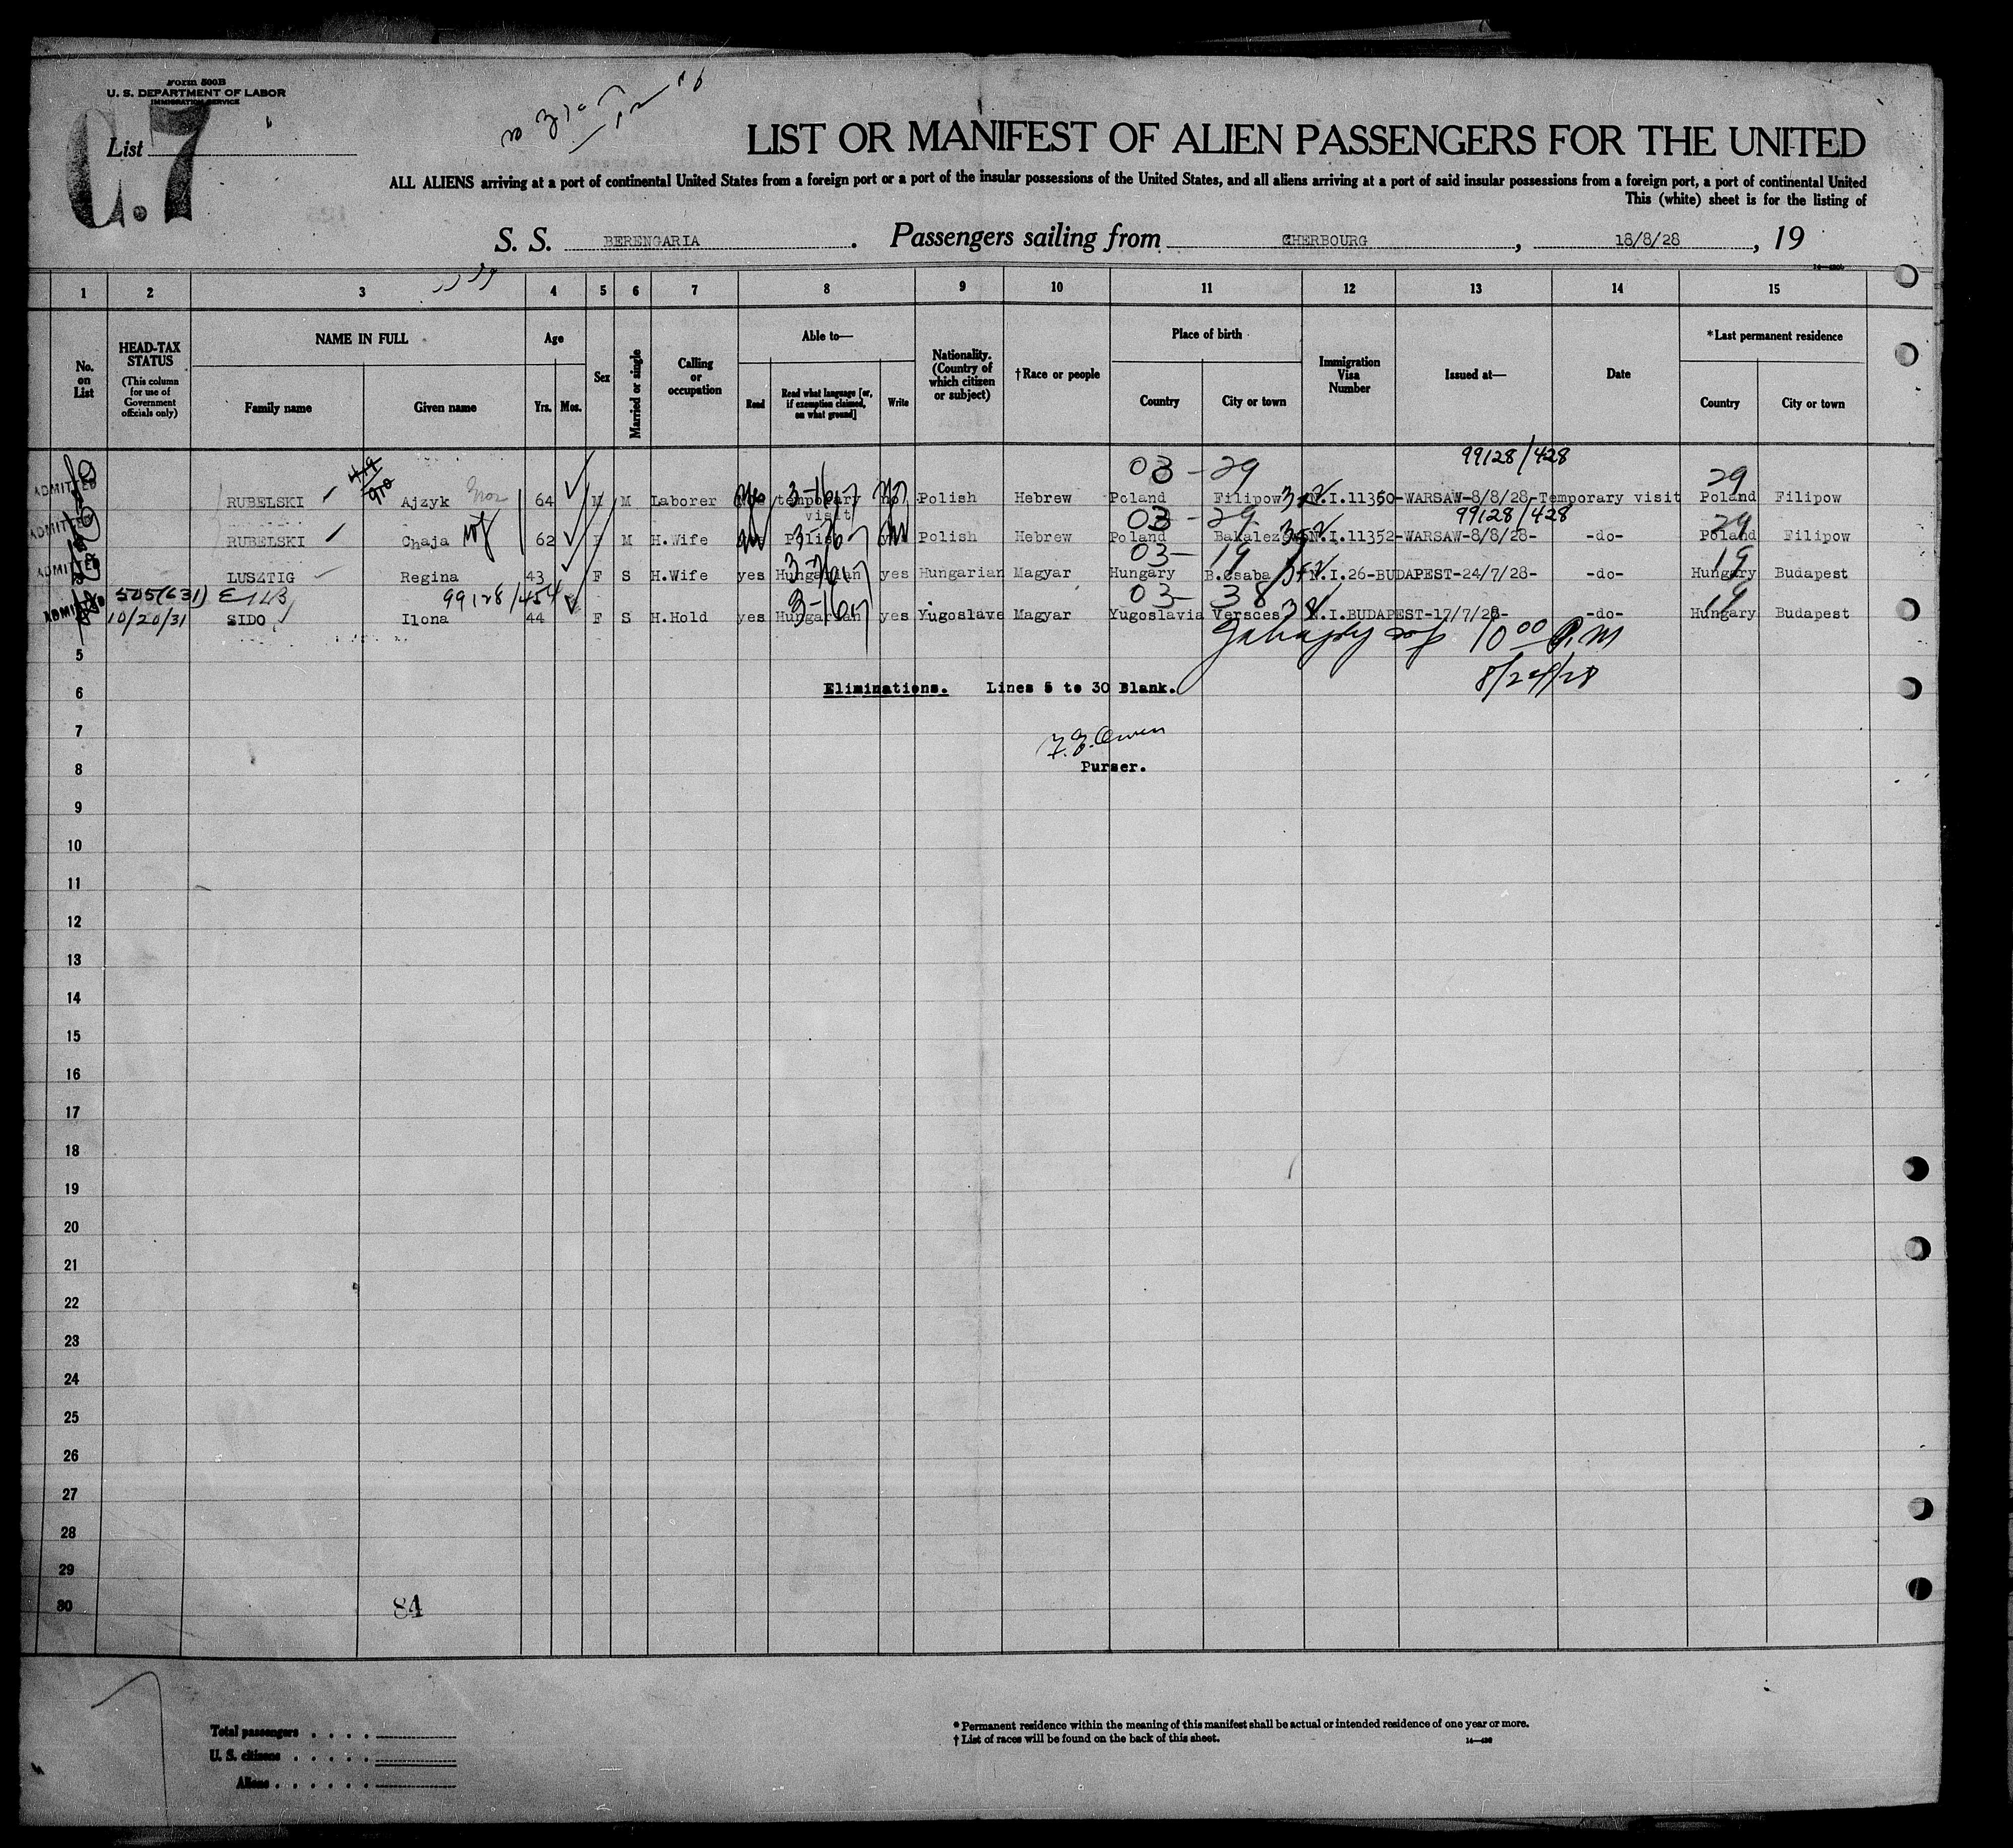 Form 500B
U. S. DEPARTMENT OF LABOR
IMMIGRATION SERVICE
C.7
List
LIST OR MANIFEST OF ALIEN PASSENGERS FOR THE UNITED
ALL ALIENS arriving at a port of continental United States from a foreign port or a port of the insular possessions of the United States, and all aliens arriving at a port of said insular possessions from a foreign port, a port of continental United
This (white) sheet is for the listing of
S. S. BERENGARIA. Passengers sailing from CHERBOURG, 18/8/28, 19
1 2 3 4 5 6 7 8 9 10 11 12 13 14 15
No. on List
HEAD-TAX STATUS (This column for use of Government officials only)
NAME IN FULL Family name Given name
Age Yrs. Mos.
Sex
Married or single
Calling or occupation
Able to— Read Read what language [or, if exemption claimed, on what ground] Write
Nationality. (Country of which citizen or subject)
†Race or people
Place of birth Country City or town
Immigration Visa Number
Issued at—
Date
*Last permanent residence Country City or town
99128/428
03-29 29
ADMITTED RUBELSKI Ajzyk 64 M M Laborer temporary visit no Polish Hebrew Poland Filipow N.I.11350-WARSAW-8/8/28-Temporary visit Poland Filipow
03-29 99128/428 29
ADMITTED RUBELSKI Chaja 62 F M H.Wife Polish Polish Hebrew Poland N.I.11352-WARSAW-8/8/28- -do- Poland Filipow
03-19 19
ADMITTED LUSZTIG Regina 43 F S H.Wife yes Hungarian yes Hungarian Magyar Hungary B.Csaba N.I.26-BUDAPEST-24/7/28- -do- Hungary Budapest
505(631) 99128/454 3-16 03-38 19
ADMITTED 10/20/31 SIDO Ilona 44 F S H.Hold yes Hungarian yes Yugoslave Magyar Yugoslavia Versces N.I.BUDAPEST-17/7/28- -do- Hungary Budapest
10 00 P.M
5
8/24/28
6 Eliminations. Lines 5 to 30 Blank.
7
F.G. Owen
8 Purser.
9
10
11
12
13
14
15
16
17
18
19
20
21
22
23
24
25
26
27
28
29
30
84
Total passengers
U. S. citizens
Aliens
* Permanent residence within the meaning of this manifest shall be actual or intended residence of one year or more.
† List of races will be found on the back of this sheet.